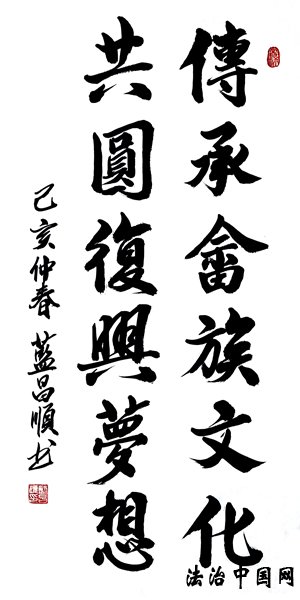 傳承畲族文化
共圓復興夢想
己亥仲春藍昌順书
法治中国网